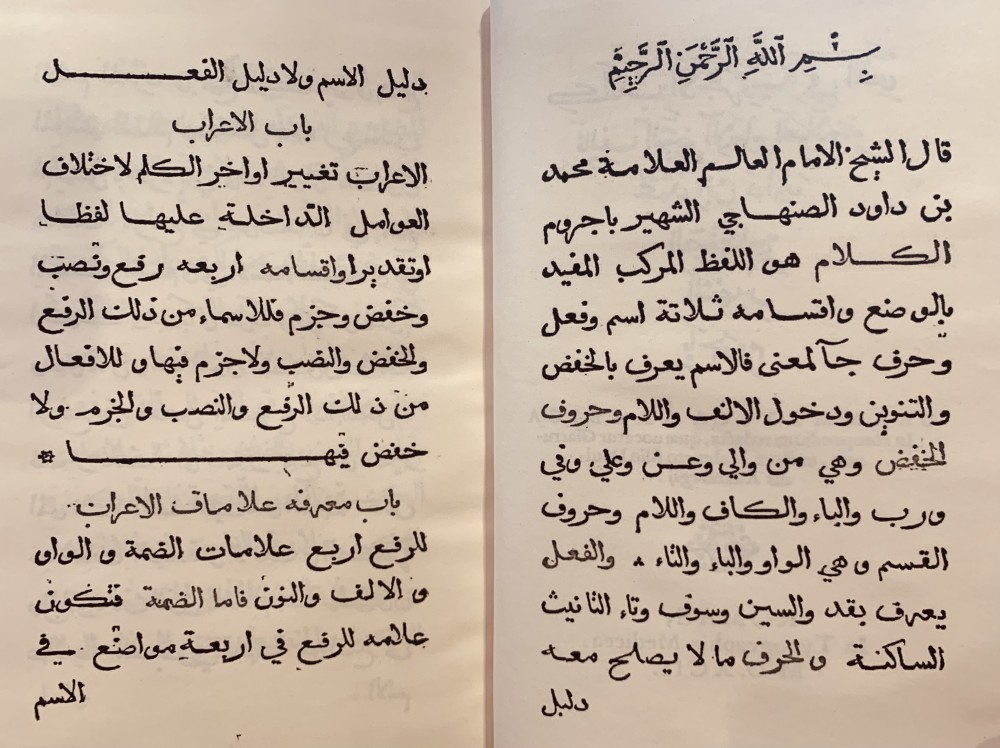 بِسْمِ ٱللَّهِ ٱلرَّحْمَنِ ٱلرَّحِيْمِ
قال الشيخ الامام العالم العلامة محمد
بن داود الصنهاجي الشهير باجروم
الكلام هو اللفظ المركب المفيد
بالوضع واقسامه ثلاتة اسم وفعل
وحرف جآ لمعنى فالاسم يعرف بالخفض
والتنوين ودخول الالف واللام وحروف
الخفض وهي من والي وعن وعلي وفي
ورب والباء والكاف واللام وحروف
القسم وهي الواو والباء والتاء * والفعل
يعرف بقد والسين وسوف وتاء التانيث
الساكنة والحرف ما لا يصلح معه
دليل
دليل الاسم ولا دليل الفعل
باب الاعراب
الاعراب تغيير اواخر الكلم لاختلاف
العوامل الداخلة عليها لفظا
اوتقديرا واقسامه اربعه رفع ونصب
وخفض وجزم فللاسماء من ذلك الرفع
والخفض والنصب ولا جزم فيها وللافعال
من ذلك الرفع والنصب والجزم ولا
خفض فيها *
باب معرفه علامات الاعراب
للرفع اربع علامات الضمة والواو
والالف والنون فاما الضمة فتكون
علامه للرفع في اربعة مواضع في
الاسم
٣